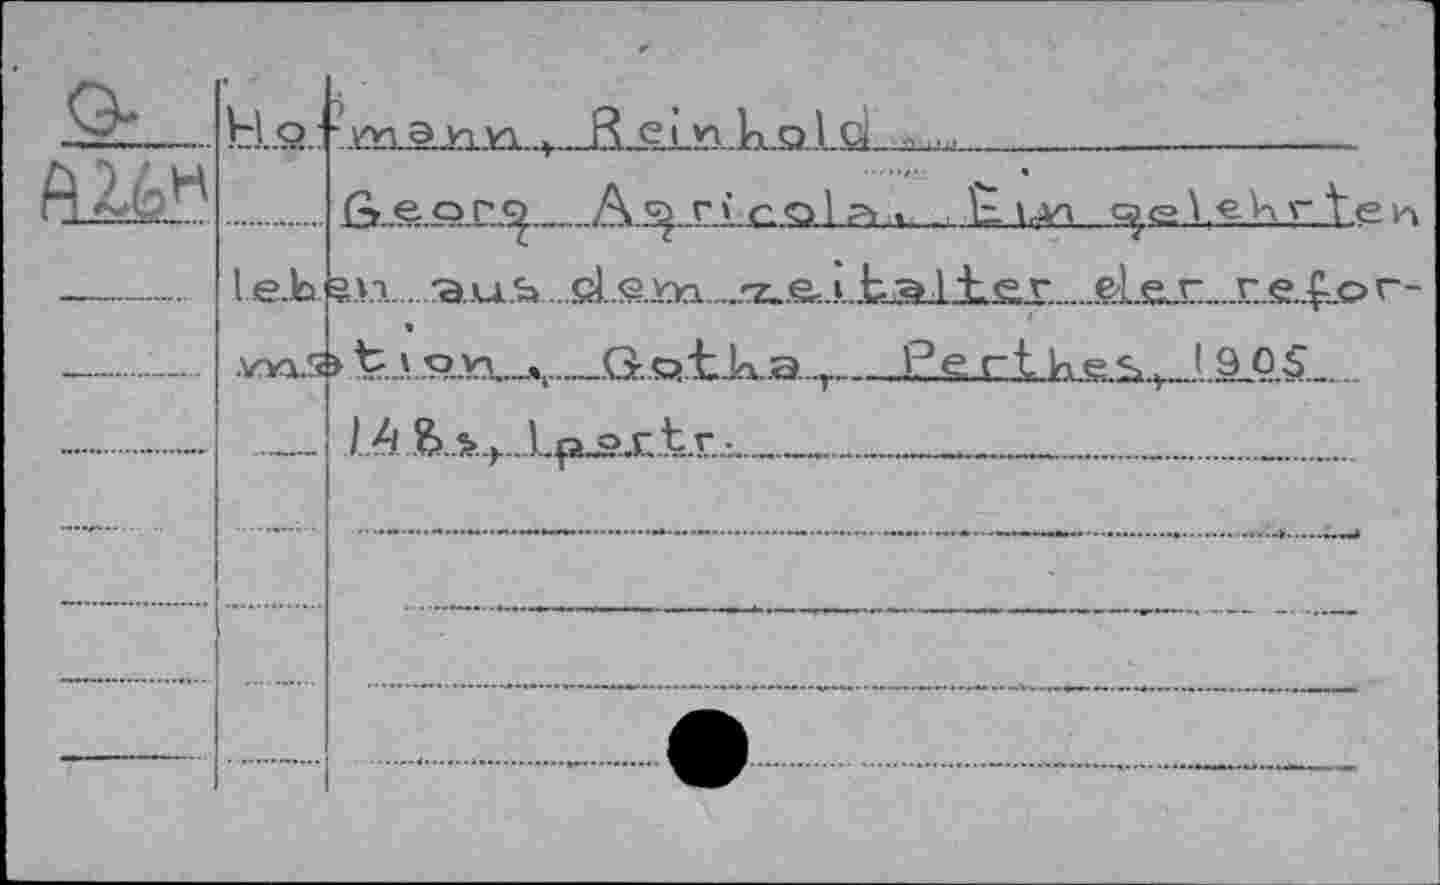 G- Hofmann, Reinhold
A26H Georg Agricola. Ein gelehrten
leben aus dem zeitalter der refor-
mation. Gotha, Perthes, 1905
148s, 1portr.